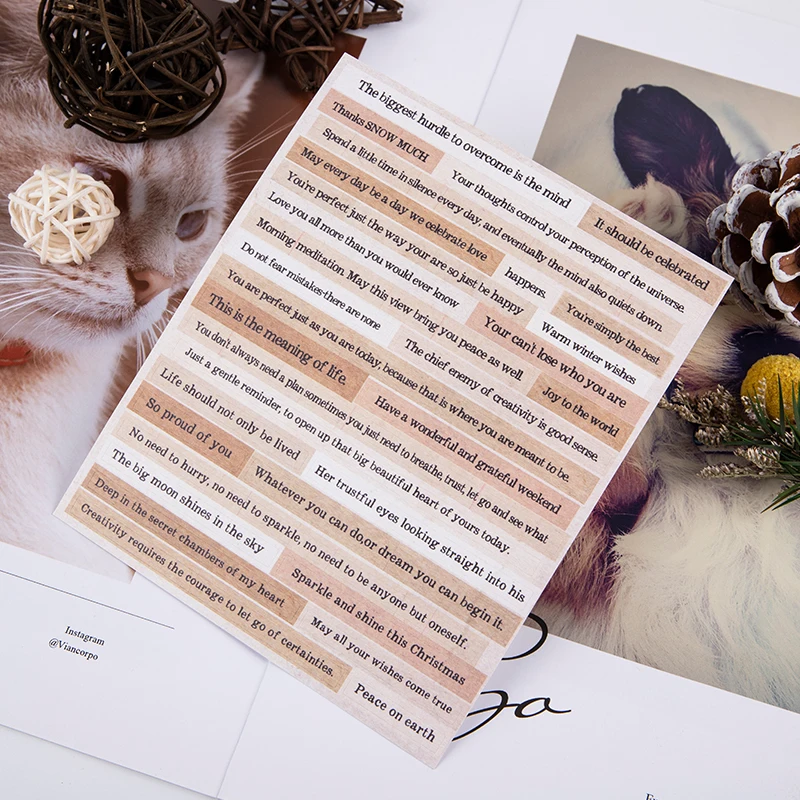 The biggest hurdle to overcome is the mind
It should be celebrated
Thanks SNOW MUCH
Your thoughts control your perception of the universe.
Spend a little time in silence every day, and eventually the mind also quiets down.
May every day be a day we celebrate love
happens.
You're simply the best
You're perfect just the way your are so just be happy
Warm winter wishes
Love you all more than you would ever know
Your can't lose who you are
Morning meditation May this view bring you peace as well.
Joy to the world
Do not fear mistakes-there are none
The chief enemy of creativity is good sense.
You are perfect just as you are today, because that is where you are meant to be.
This is the meaning of life.
Have a wonderful and grateful weekend
You don't always need a plan sometimes you just need to breathe, trust, let go and see what
Just a gentle reminder, to open up that big beautiful heart of yours today.
Life should not only be lived
Her trustful eyes looking straight into his
So proud of you
Whatever you can do,or dream you can begin it.
No need to hurry, no need to sparkle, no need to be anyone but oneself.
The big moon shines in the sky
Sparkle and shine this Christmas
Deep in the secret chambers of my heart
May all your wishes come true
Creativity requires the courage to let go of certainties.
Peace on earth
Instagram
@Viancorpo